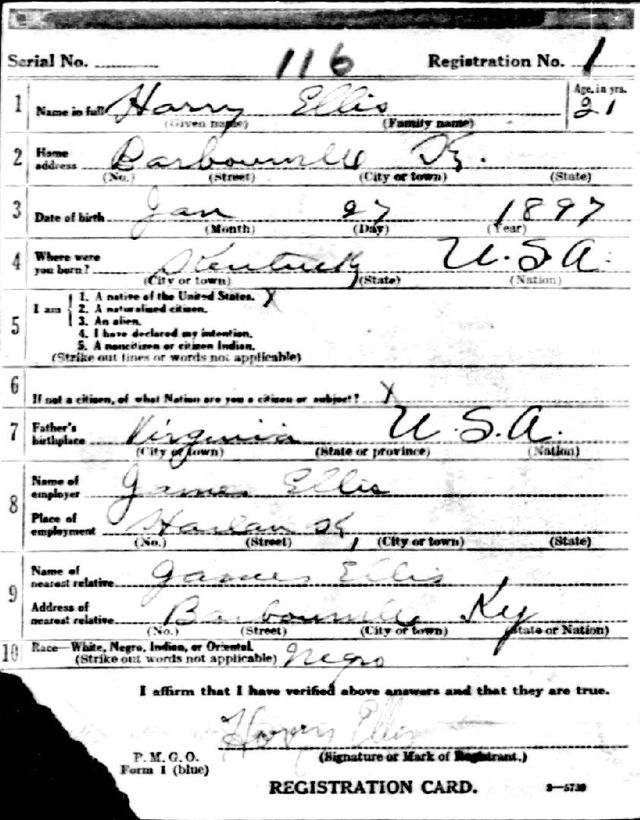 Serial No. 116 Registration No. 1
1 Name in full Harry Ellis Age, in yrs. 21
(Given name) (Family name)
2 Home address Barbourville Ky.
(No.) (Street) (City or town) (State)
3 Date of birth Jan 27 1897
(Month) (Day) (Year)
4 Where were you born? Kentucky U.S.A.
(City or town) (State) (Nation)
5 I am
1. A native of the United States. X
2. A naturalized citizen.
3. An alien.
4. I have declared my intention.
5. A noncitizen or citizen Indian.
(Strike out lines or words not applicable)
6 If not a citizen, of what Nation are you a citizen or subject? X
7 Father's birthplace Virginia U.S.A.
(City or town) (State or province) (Nation)
8 Name of employer James Ellis
Place of employment Harlan Ky
(No.) (Street) (City or town) (State)
9 Name of nearest relative James Ellis
Address of nearest relative Barbourville Ky
(No.) (Street) (City or town) (State or Nation)
10 Race—White, Negro, Indian, or Oriental.
(Strike out words not applicable) Negro
I affirm that I have verified above answers and that they are true.
Harry Ellis
P. M. G. O. (Signature or Mark of Registrant.)
Form 1 (blue)
REGISTRATION CARD. 3—5739